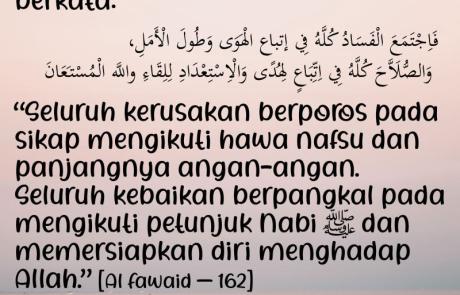 berkata:
فَاِجْتَمَعَ الْفَسَادُ كُلَّهُ فِي إتباع الْهَوَى وَطُولَ الْأَمَلِ،
وَالصُّلَاَّحَ كُلَّهُ فِي اِتِّبَاعٍ لِهُدًى وَالْاِسْتِعْدَادِ لِلِقَاءِ واللَّه الْمُسْتَعَانَ
“Seluruh kerusakan berporos pada
sikap mengikuti hawa nafsu dan
panjangnya angan-angan.
Seluruh kebaikan berpangkal pada
mengikuti petunjuk Nabi ﷺ dan
memersiapkan diri menghadap
Allah.” [Al fawaid – 162]